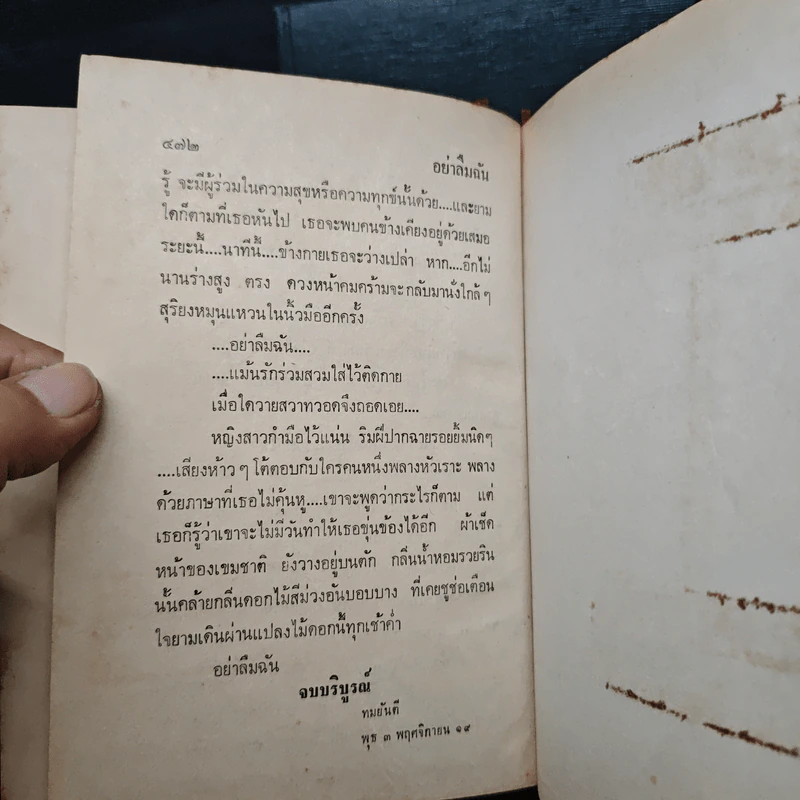 ๔๗๒
อย่าลืมฉัน
รู้ จะมีผู้ร่วมในความสุขหรือความทุกข์นั้นด้วย....และยาม
ใดก็ตามที่เธอหันไป เธอจะพบคนข้างเคียงอยู่ด้วยเสมอ
ระยะนี้....นาทีนี้....ข้างกายเธอจะว่างเปล่า หาก....อีกไม่
นานร่างสูง ตรง ดวงหน้าคมคร้ามจะกลับมานั่งใกล้ๆ
สุริยงหมุนแหวนในนิ้วมืออีกครั้ง
....อย่าลืมฉัน....
....แม้นรักร่วมสวมใส่ไว้ติดกาย
เมื่อใดวายสวาทวอดจึงถอดเอย....
หญิงสาวกำมือไว้แน่น ริมฝีปากฉายรอยยิ้มนิดๆ
....เสียงห้าวๆ โต้ตอบกับใครคนหนึ่งพลางหัวเราะ พลาง
ด้วยภาษาที่เธอไม่คุ้นหู....เขาจะพูดว่ากระไรก็ตาม แต่
เธอก็รู้ว่าเขาจะไม่มีวันทำให้เธอขุ่นข้องได้อีก ผ้าเช็ด
หน้าของเขมชาติ ยังวางอยู่บนตัก กลิ่นน้ำหอมรวยริน
นั้นคล้ายกลิ่นดอกไม้สีม่วงอันบอบบาง ที่เคยชูช่อเตือน
ใจยามเดินผ่านแปลงไม้ดอกนี้ทุกเช้าค่ำ
อย่าลืมฉัน
จบบริบูรณ์
ทมยันตี
พุธ ๓ พฤศจิกายน ๑๙